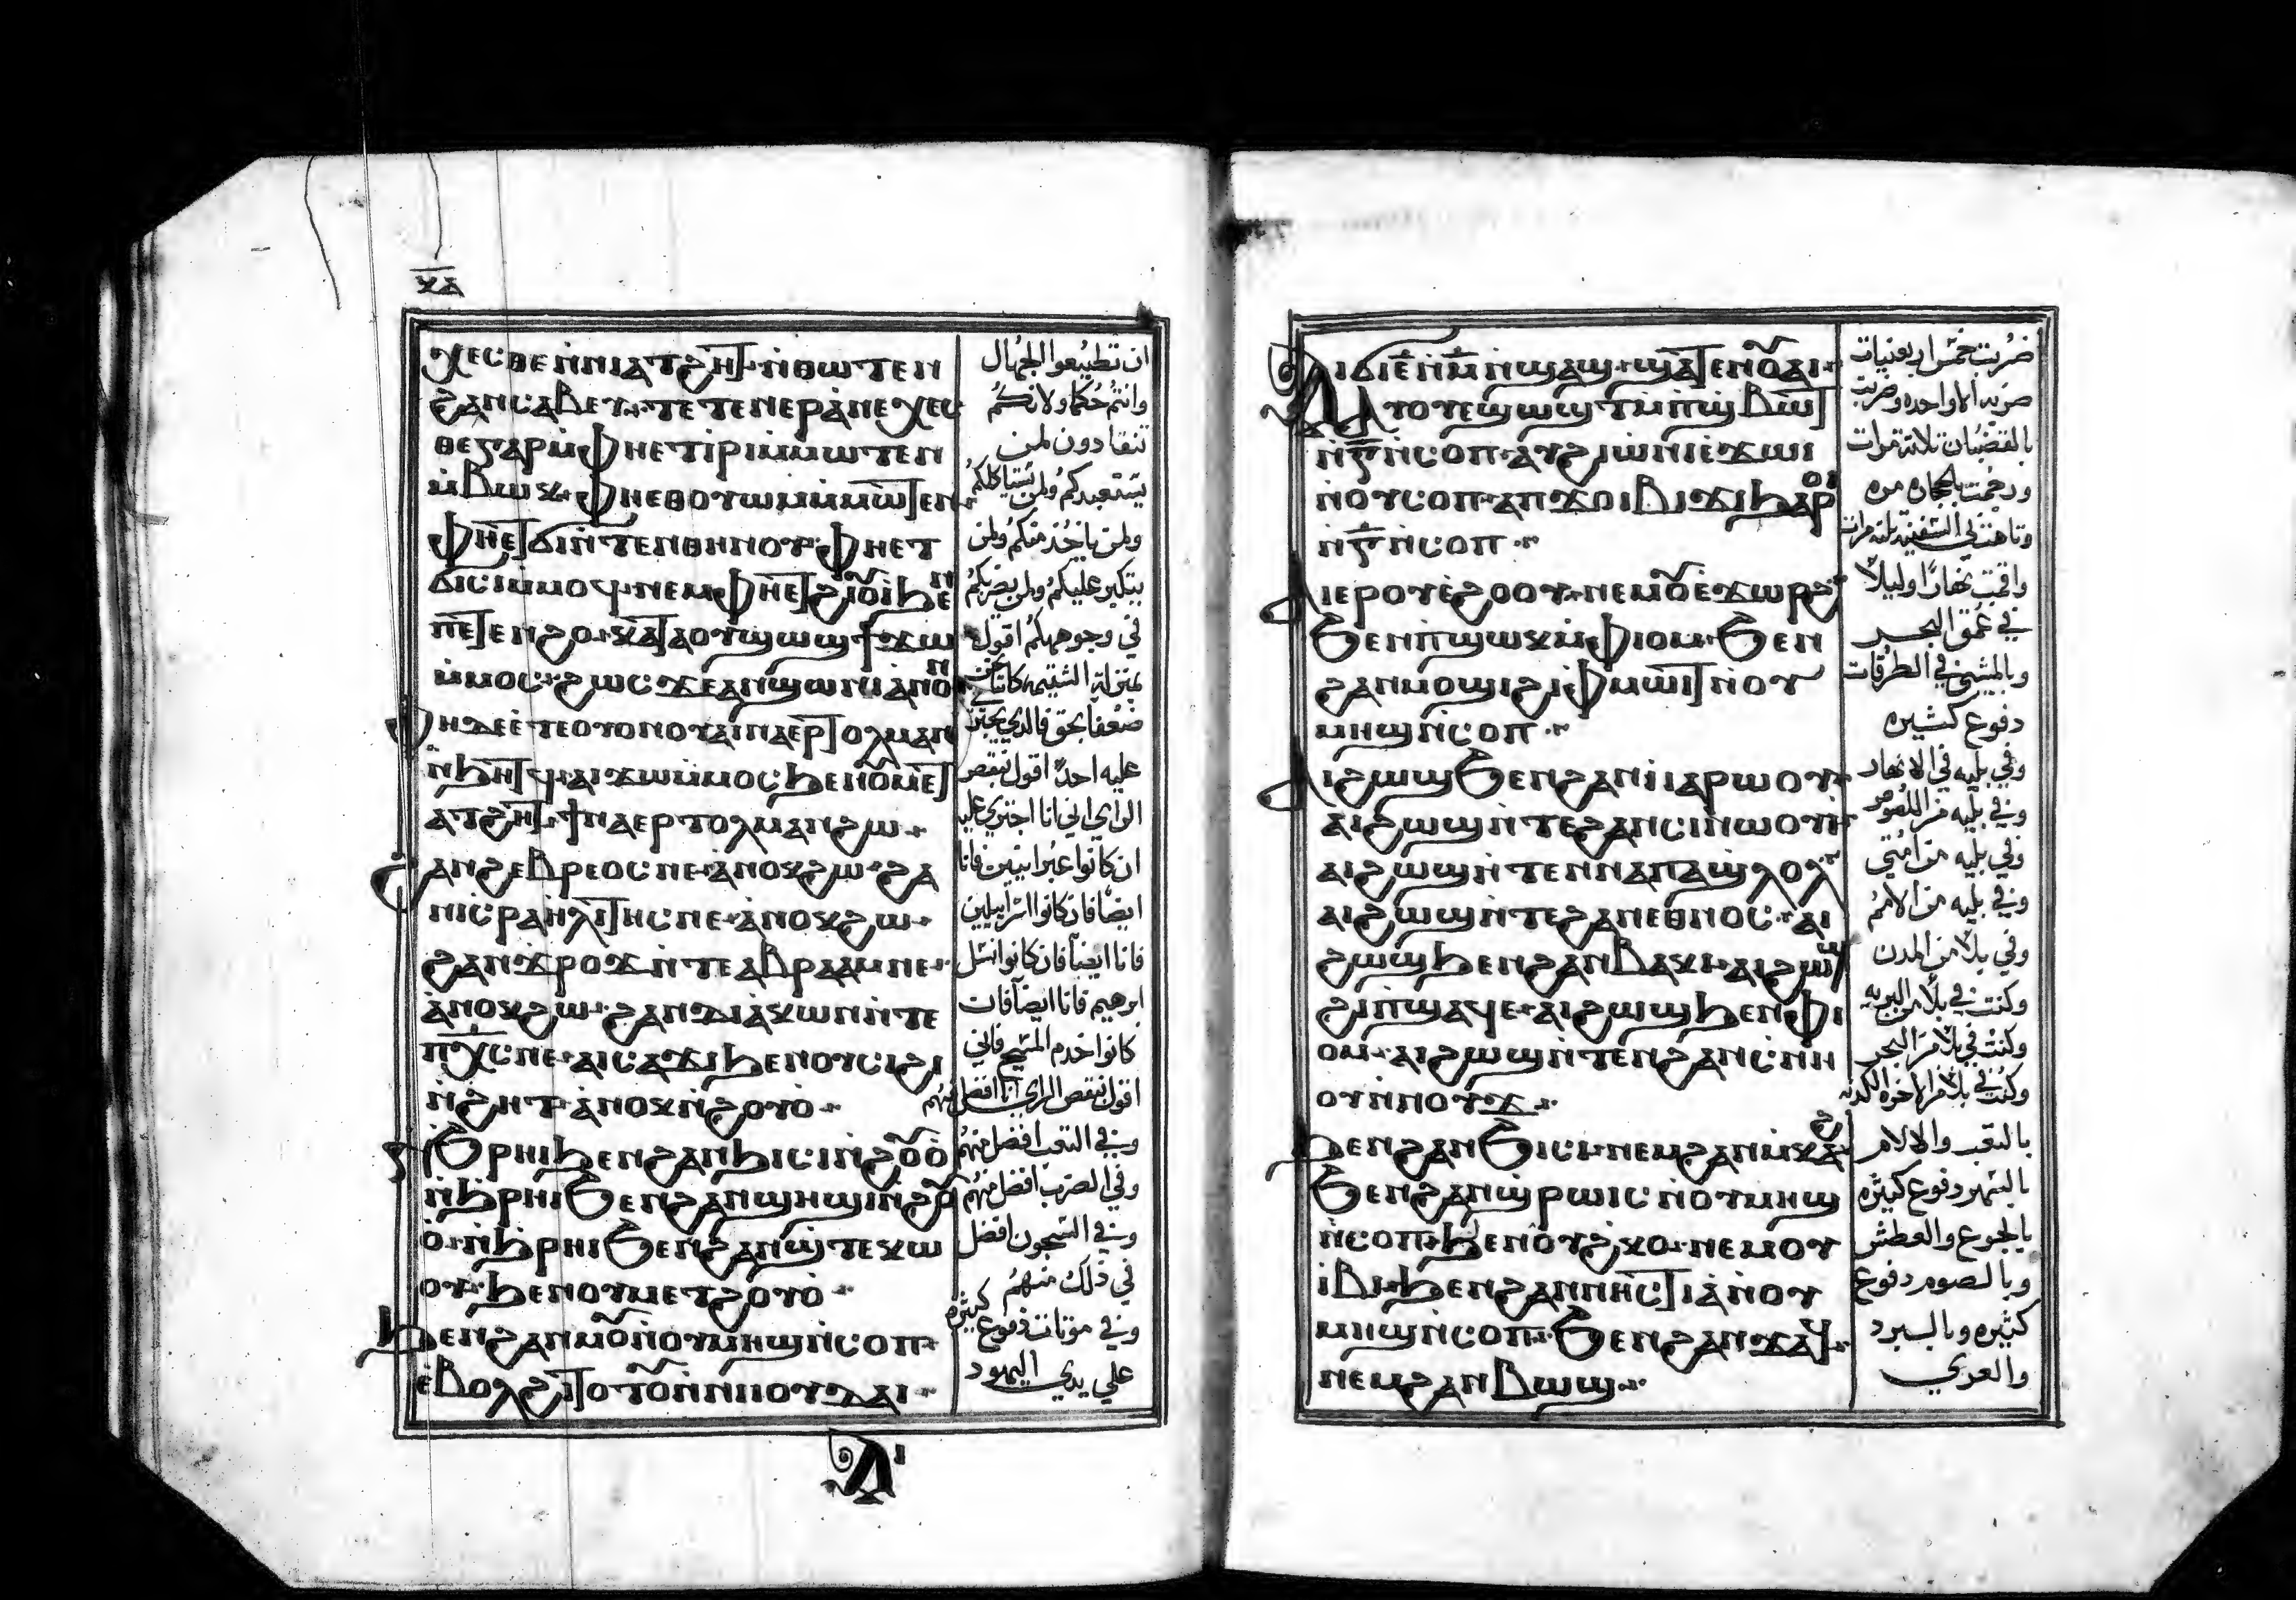 ⲭⲁ
ⲭⲉⲥⲑⲉ ⲛ̀ⲛⲓⲁⲧϩⲏⲧ· ⲛ̀ⲑⲱⲧⲉⲛ
ϩⲁⲛⲥⲁⲃⲉⲩ· ⲧⲉⲧⲉⲛⲉⲣⲁ̀ⲛⲉⲭⲉⲥ
ⲑⲉ ⲅⲁⲣ ⲙ̀ⲫⲏⲉⲧⲓⲣⲓ ⲙ̀ⲙⲱⲧⲉⲛ
ⲙ̀ⲃⲱⲕ· ⲫⲏⲉⲑⲟⲩⲱⲙ ⲙ̀ⲙⲱⲧⲉⲛ
ⲫⲏⲉⲧϭⲓ ⲛ̀ⲧⲉⲛⲑⲏⲛⲟⲩ· ⲫⲏⲉⲧ
ϭⲓⲥⲓ ⲙ̀ⲙⲟϥ· ⲛⲉⲙ ⲫⲏⲉⲧϩⲓⲟⲩⲓ̀ ϧⲉⲛ
ⲡⲉⲧⲉⲛϩⲟ· ⲕⲁⲧⲁ ⲟⲩϣⲱϣ ϯϫⲱ
ⲙ̀ⲙⲟⲥ· ϩⲱⲥ ϫⲉ ⲁⲛϣⲱⲛⲓ ⲁⲛⲟⲛ
ⲫⲏ ⲇⲉ ⲉ̀ⲧⲉ ⲟⲩⲟⲛ ⲟⲩⲁⲓ ⲛⲁⲉⲣⲧⲟⲗⲙⲁⲛ
ⲛ̀ϧⲏⲧϥ· ⲁⲓϫⲱ ⲙ̀ⲙⲟⲥ ϧⲉⲛ ⲟⲩⲙⲉⲧ
ⲁⲧϩⲏⲧ· ϯⲛⲁⲉⲣⲧⲟⲗⲙⲁⲛ ϩⲱ·
ϩⲁⲛϩⲉⲃⲣⲉⲟⲥ ⲛⲉ· ⲁ̀ⲛⲟⲕ ϩⲱ· ϩⲁ
ⲛⲓⲥⲣⲁⲏⲗⲓⲧⲏⲥ ⲛⲉ· ⲁ̀ⲛⲟⲕ ϩⲱ·
ϩⲁⲛϫⲣⲟϫ ⲛ̀ⲧⲉ ⲁⲃⲣⲁⲁⲙ ⲛⲉ·
ⲁ̀ⲛⲟⲕ ϩⲱ· ϩⲁⲛⲇⲓⲁ̀ⲕⲱⲛ ⲛ̀ⲧⲉ
ⲡⲭ̅ⲥ̅ ⲛⲉ· ⲁⲓⲥⲁϫⲓ ϧⲉⲛ ⲟⲩⲥⲓϩⲓ
ⲛ̀ϩⲏⲧ· ⲁ̀ⲛⲟⲕ ⲛ̀ϩⲟⲩⲟ̀·
ⲛ̀ϧⲣⲏⲓ ϧⲉⲛ ϩⲁⲛϧⲓⲥⲓ ⲛ̀ϩⲟⲩⲟ̀
ⲛ̀ϧⲣⲏⲓ ϧⲉⲛ ϩⲁⲛϣⲏϣⲓ ⲛ̀ϩⲟⲩ
ⲟ̀· ⲛ̀ϧⲣⲏⲓ ϧⲉⲛ ϩⲁⲛϣ̀ⲧⲉⲕⲱ
ⲟⲩ· ϧⲉⲛ ⲟⲩⲙⲉⲧϩⲟⲩⲟ̀·
ϧⲉⲛ ϩⲁⲛⲙⲟⲩ ⲛ̀ⲟⲩⲙⲏϣ ⲛ̀ⲥⲟⲡ·
ⲉ̀ⲃⲟⲗϩⲓⲧⲟⲧⲟⲩ ⲛ̀ⲛⲓⲓⲟⲩⲇⲁⲓ·
ⲁⲓ
ان تطيعوا الجهال
وانتم حكما ولانكم
تنقادون لمن
يستعبدكم ولمن يستاكلكم
ولمن ياخذ منكم ولمن
يتكبر عليكم ولمن يضربكم
في وجوهكم اقول
بمنزلة الشتيمه كاننا نحن
ضعفا بحق فالذي يجتري
عليه احدًا اقول بنقص
الراي اني انا اجتري عليه
ان كانوا عبرانيين فانا
ايضًا فان كانوا اسراييليين
فانا ايضًا فان كانوا نسل
ابرهيم فانا ايضًا فان
كانوا خدم المسيح فاني
اقول بنقص الراي انا افضل منهم
وفي التعب افضل منهم
وفي الضرب افضل منهم
وفي السجون افضل
في ذلك منهم
وفي موتات دفوع كثيره
علي يدي اليهود
ⲁⲓϭⲓ ⲉ̅ ⲛ̀ⲙ̅ ⲛ̀ϣⲁϣ· ϣⲁⲧⲉⲛ ⲟⲩⲁⲓ·
ⲁⲩⲟⲩⲉϣⲱϣⲧ ⲙ̀ⲡϣ̀ⲃⲱⲧ
ⲛ̀ⲅ̅ ⲛ̀ⲥⲟⲡ· ⲁⲩϩⲓⲱⲛⲓ ⲉ̀ϫⲱⲓ
ⲛⲟⲩⲥⲟⲡ· ⲁⲡϫⲟⲓ ⲃⲓϫⲓ ϧⲁⲣⲟⲓ
ⲛ̀ⲅ̅ ⲛ̀ⲥⲟⲡ·
ⲁⲓⲉⲣ ⲟⲩⲉ̀ϩⲟⲟⲩ· ⲛⲉⲙ ⲟⲩⲉ̀ϫⲱⲣϩ
ϧⲉⲛ ⲡ̀ϣⲱⲕ ⲙ̀ⲫⲓⲟⲙ· ϧⲉⲛ
ϩⲁⲛⲙⲟϣⲓ ϩⲓ ⲫⲙⲱⲓⲧ ⲛⲟⲩ
ⲙⲏϣ ⲛ̀ⲥⲟⲡ·
ⲁⲓϩⲱϣ ϧⲉⲛ ϩⲁⲛⲓⲁⲣⲱⲟⲩ·
ⲁⲓϩⲱϣ ⲛ̀ⲧⲉ ϩⲁⲛⲥⲓⲛⲱⲟⲩⲓ
ⲁⲓϩⲱϣ ⲛ̀ⲧⲉⲛ ⲛⲁⲡⲁϣⲗⲟⲗ
ⲁⲓϩⲱϣ ⲛ̀ⲧⲉ ϩⲁⲛⲉⲑⲛⲟⲥ· ⲁⲓ
ϩⲱϣ ϧⲉⲛ ϩⲁⲛⲃⲁⲕⲓ· ⲁⲓϩⲱϣ
ϩⲓ ⲡ̀ϣⲁϥⲉ· ⲁⲓϩⲱϣ ϧⲉⲛ ⲫⲓ
ⲟⲙ· ⲁⲓϩⲱϣ ⲛ̀ⲧⲉⲛ ϩⲁⲛⲥⲛⲏ
ⲟⲩ ⲛ̀ⲛⲟⲩϫ·
ϧⲉⲛ ϩⲁⲛϧⲓⲥⲓ· ⲛⲉⲙ ϩⲁⲛⲙ̀ⲕⲁϩ
ϧⲉⲛ ϩⲁⲛϣ̀ⲣⲱⲓⲥ ⲛ̀ⲟⲩⲙⲏϣ
ⲛ̀ⲥⲟⲡ· ϧⲉⲛ ⲟⲩϩ̀ⲕⲟ· ⲛⲉⲙ ⲟⲩ
ⲓ̀ⲃⲓ· ϧⲉⲛ ϩⲁⲛⲛⲏⲥⲧⲓⲁ̀ ⲛ̀ⲟⲩ
ⲙⲏϣ ⲛ̀ⲥⲟⲡ· ϧⲉⲛ ϩⲁⲛϫⲁϥ·
ⲛⲉⲙ ϩⲁⲛⲃⲱϣ·
ضربت خمس اربعينيات
ضربه الا واحده وضربت
بالقضبان ثلاثة مرات
ورجمت بالحجاره مره
وتاهت بي السفينه ثلثه مرات
واقمت نهارًا وليلًا
في عمق البحر
وبالمشي في الطرقات
دفوع كثيره
وفي بليه في الانهار
وفي بليه من اللصوص
وفي بليه من امتي
وفي بليه من الامم
وفي بلا من المدن
وكنت في بلا من البريه
وكنت في بلا من البحر
وكنت في بلا من الاخوه الكذبه
بالتعب والالام
بالسهر دفوع كثيره
بالجوع والعطش
وبالصوم دفوع
كثيره وبالبرد
والعري